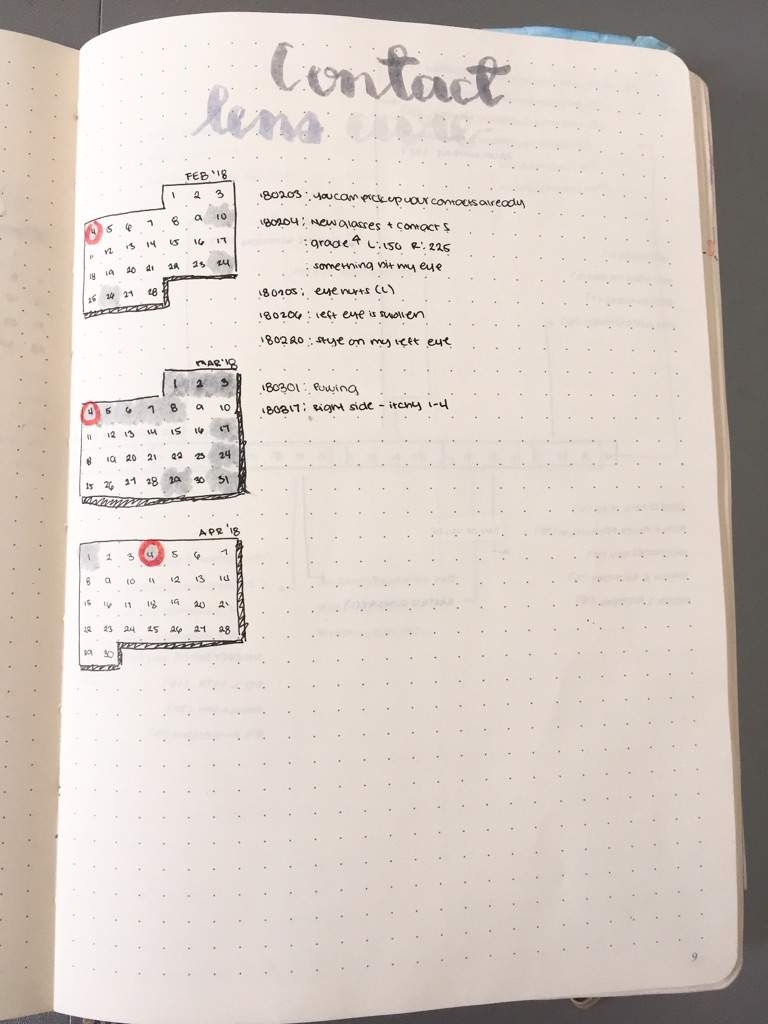 Contact
lens care
FEB '18
1 2 3
4 5 6 7 8 9 10
11 12 13 14 15 16 17
18 19 20 21 22 23 24
25 26 27 28
180203: you can pick up your contacts already
180204: New glasses + contacts
: grade 4 L: 150 R: 225
: something hit my eye
180205: eye hurts (L)
180206: left eye is swollen
180220: stye on my left eye
MAR '18
1 2 3
4 5 6 7 8 9 10
11 12 13 14 15 16 17
18 19 20 21 22 23 24
25 26 27 28 29 30 31
180301:
180317: Right side - itchy 1-4
APR '18
1 2 3 4 5 6 7
8 9 10 11 12 13 14
15 16 17 18 19 20 21
22 23 24 25 26 27 28
29 30
9